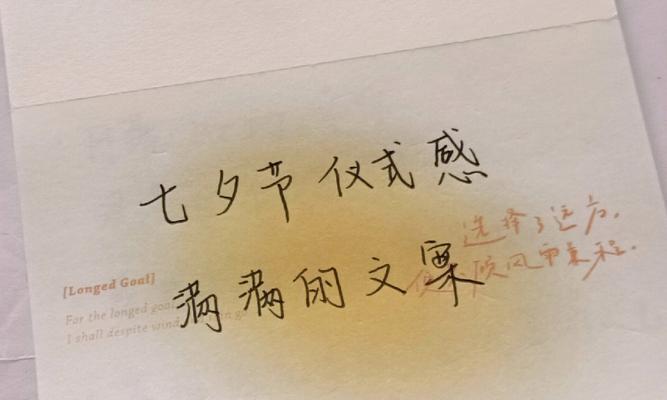 七夕节仪式感
满满的文案
选择了远方,
顾风雨兼程.
[Longed Goal]
For the longed goal
I shall despite wind